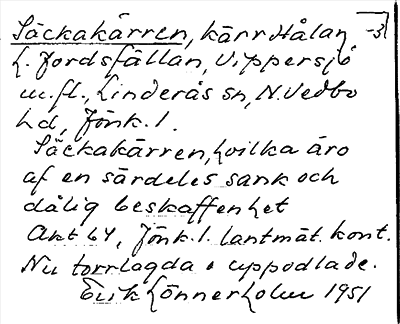 Säckakärren, kärr Hålan -3
h. Jordsfällan, Vippersjö
m.fl., Linderås sn, N. Vedbo
hd, Jönk. l.
Säckakärren, hvilka äro
af en särdeles sank och
dålig beskaffenhet
Akt 64, Jönk. l. lantmät. kont.
Nu torrlagda o uppodlade.
Erik Lönnerholm 1951